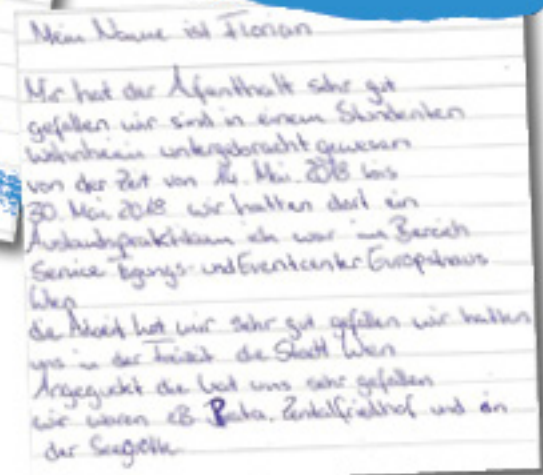 Mein Name ist Florian
Mir hat der Afanthalt sehr gut
gefallen wir sind in einem Stundenten
Wohnheim untergebracht gewesen
von der Zeit von 14. Mai. 2018 bis
30. Mai 2018 wir hatten dort ein
Auslandspraktikum ich war im Bereich
Service Tagungs- und Eventcenter Europahaus
Wien
die Arbeit hat mir sehr gut gefallen wir hatten
uns in der Freizeit die Stadt Wien
Angeguckt die hat uns sehr gefallen
wir waren zB Zentalfriedhof und in
der Seegrotte